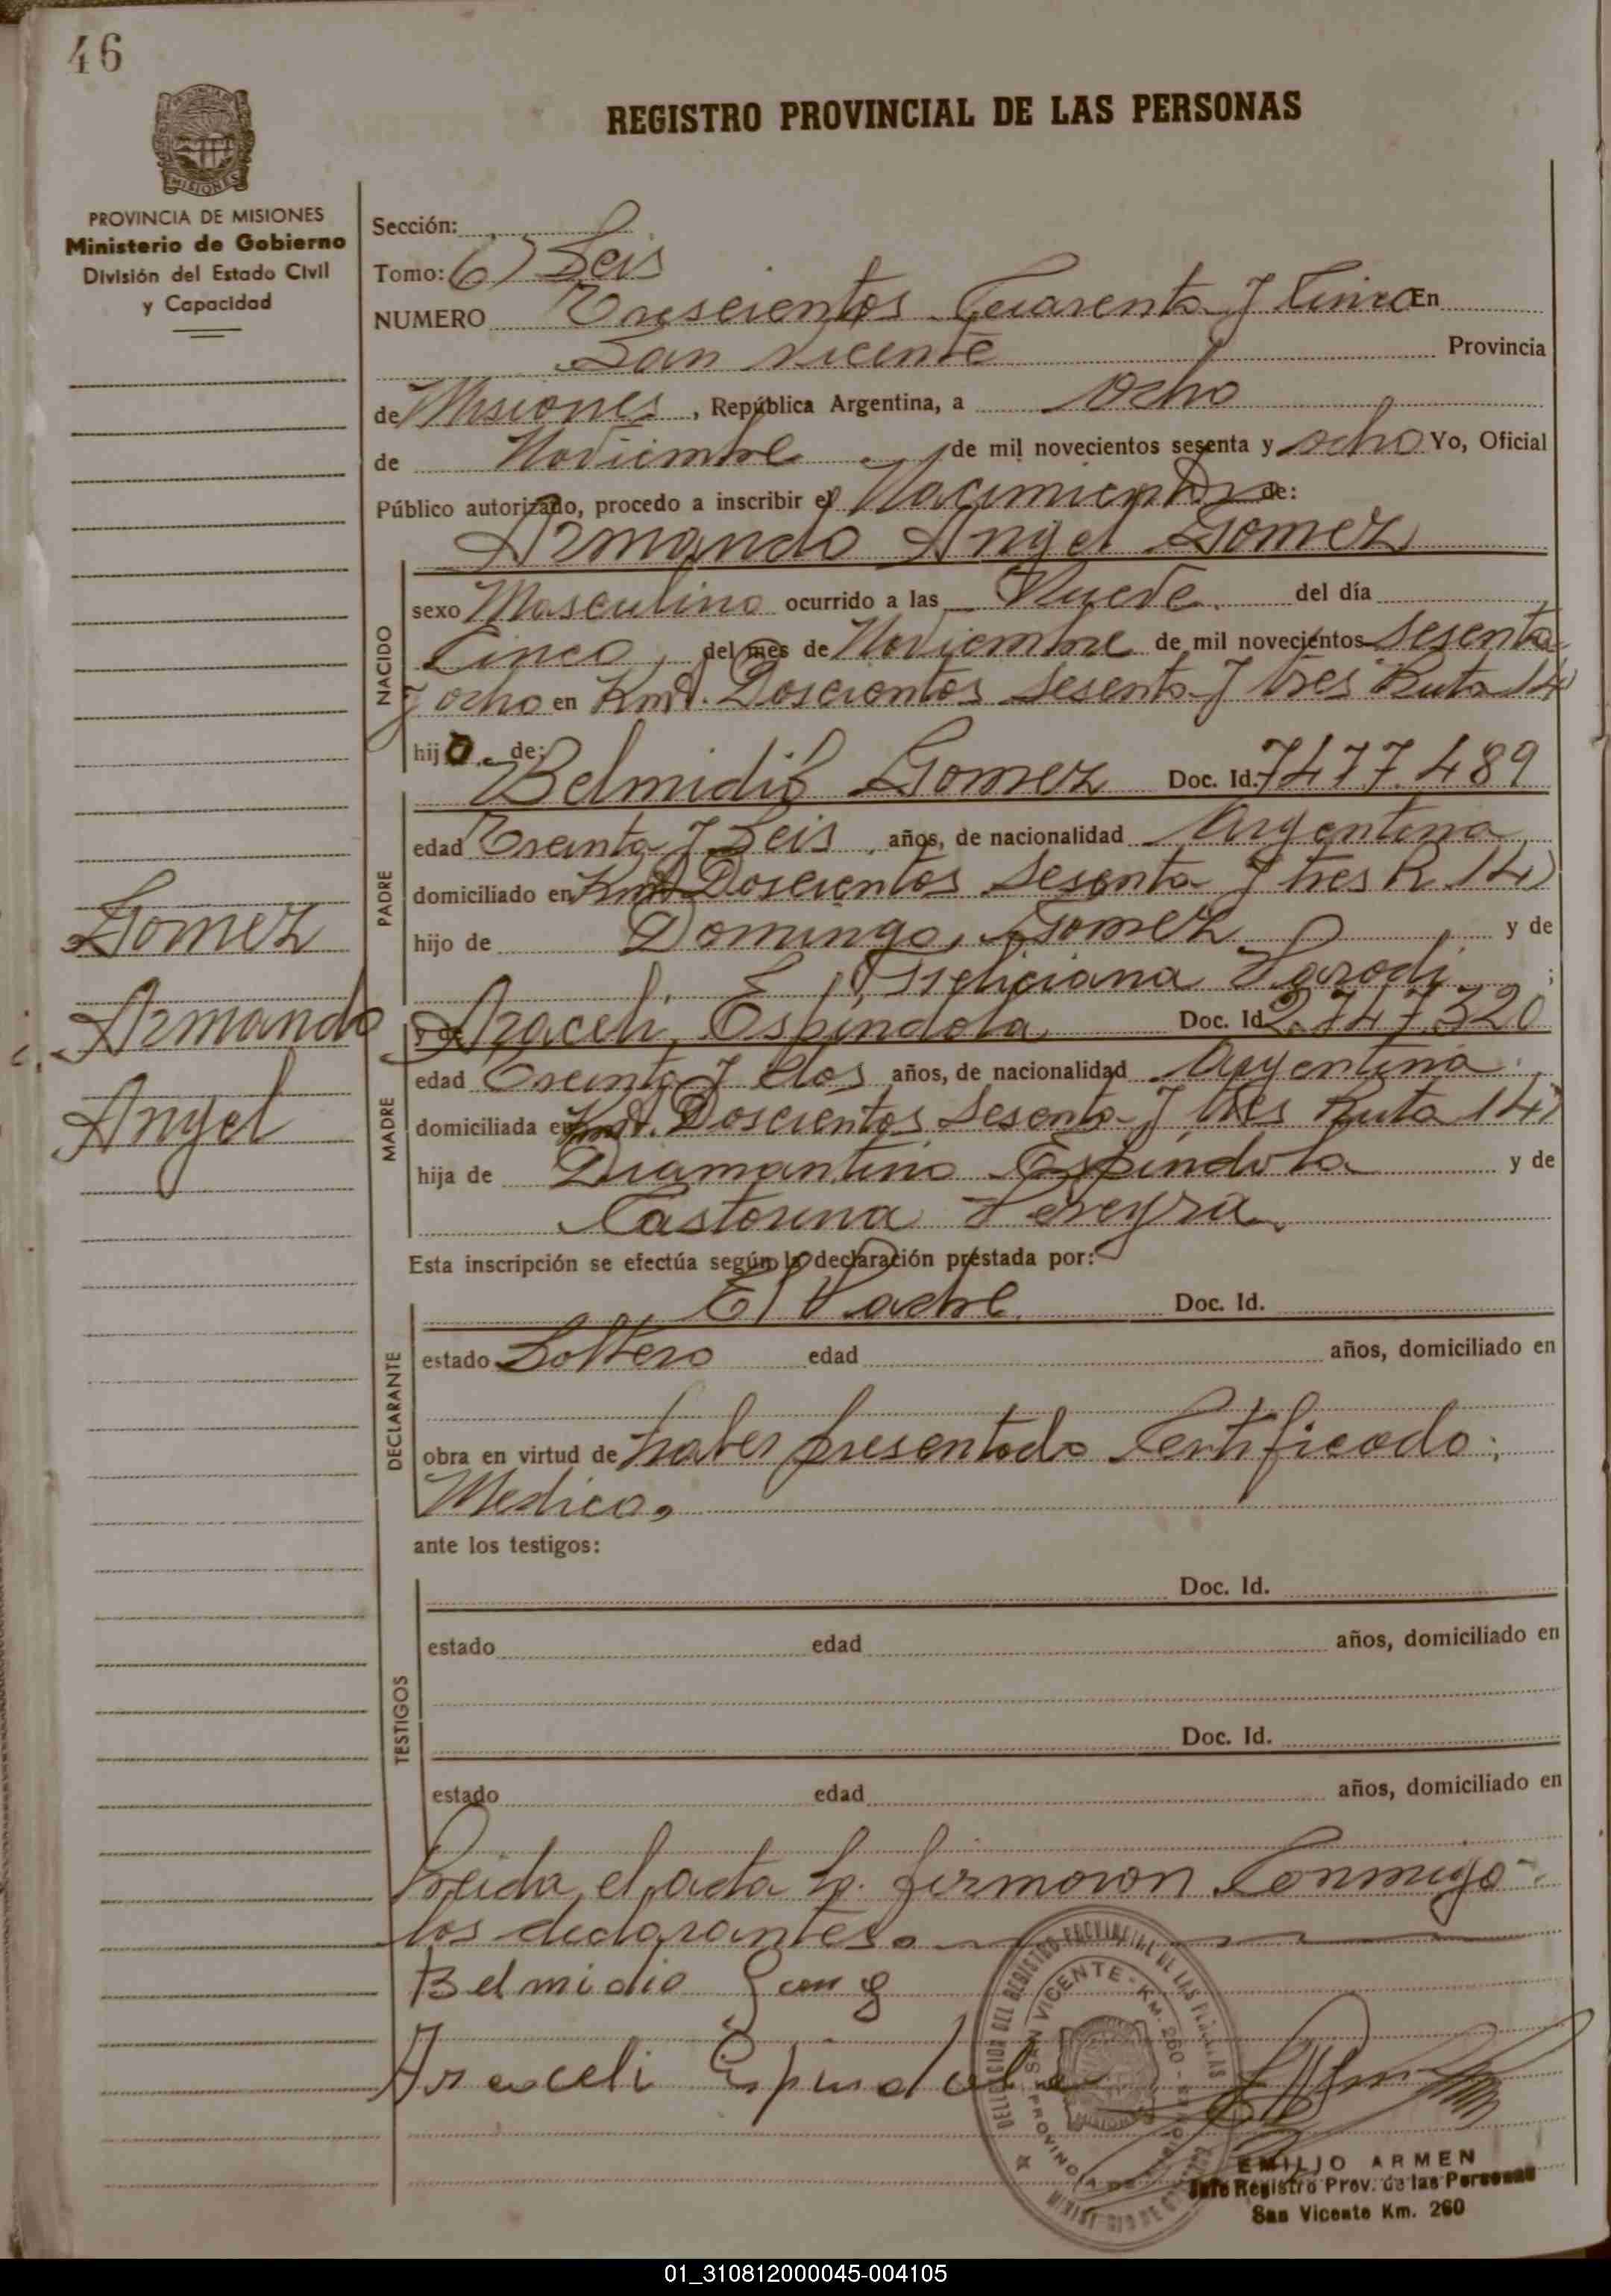 46
REGISTRO PROVINCIAL DE LAS PERSONAS
MISIONES
PROVINCIA DE MISIONES
Ministerio de Gobierno
División del Estado Civil
y Capacidad
Gomez
Armando
Angel
Sección:
Tomo: 6) Seis
NUMERO Trescientos Cuarenta y Cinco En
San Vicente Provincia
de Misiones, República Argentina, a Ocho
de Noviembre de mil novecientos sesenta y ocho Yo, Oficial
Público autorizado, procedo a inscribir el Nacimiento de:
Armando Angel Gomez
NACIDO
sexo Masculino ocurrido a las Nueve del día
Cinco, del mes de Noviembre de mil novecientos Sesenta
y ocho en Kmt. Doscientos Sesenta y tres Ruta 14
hijo de:
PADRE
Belmidio Gomez Doc. Id. 7477.489
edad Treinta y Seis años, de nacionalidad Argentina
domiciliado en Kmt. Doscientos Sesenta y tres R. 14)
hijo de Domingo Gomez y de
Feliciana Parodi ;
MADRE
y de Araceli Espindola Doc. Id. 2.747.320
edad Treinta y dos años, de nacionalidad Argentina
domiciliada en Kmt. Doscientos Sesenta y tres Ruta 14)
hija de Diamantino Espindola y de
Castorina Pereyra
Esta inscripción se efectúa según la declaración prestada por:
DECLARANTE
El Padre Doc. Id.
estado Soltero edad años, domiciliado en
obra en virtud de haber presentado Certificado
Medico.
ante los testigos:
TESTIGOS
Doc. Id.
estado edad años, domiciliado en
Doc. Id.
estado edad años, domiciliado en
Leida el acta la firmaron Conmigo
los declarantes.
Belmidio
Araceli Espindola
DELEGACION DEL REGISTRO PROVINCIAL DE LAS PERSONAS
SAN VICENTE - KM. 260
EMILIO ARMEN
Jefe Registro Prov. de las Personas
San Vicente Km. 260
01_310812000045-004105